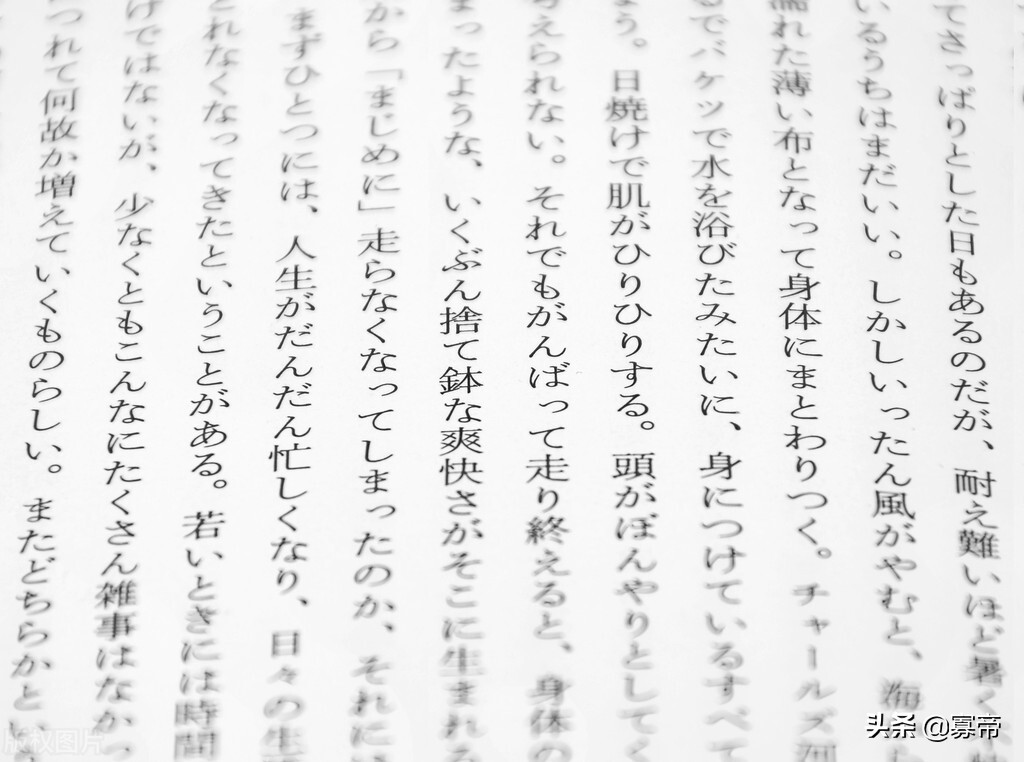 てさっぱりとした日もあるのだが、耐え難いほど暑く
いるうちはまだいい。しかしいったん風がやむと、海
濡れた薄い布となって身体にまとわりつく。チャールズ河
るでバケツで水を浴びたみたいに、身につけているすべて
う。日焼けで肌がひりひりする。頭がぼんやりとしてく
考えられない。それでもがんばって走り終えると、身体の
まったような、いくぶん捨て鉢な爽快さがそこに生まれる
から「まじめに」走らなくなってしまったのか、それにい
まずひとつには、人生がだんだん忙しくなり、日々の生
とれなくなってきたということがある。若いときには時間
けではないが、少なくともこんなにたくさん雑事はなかっ
つれて何故か増えていくものらしい。またどちらかとい
版权图片
头条 @寡帝